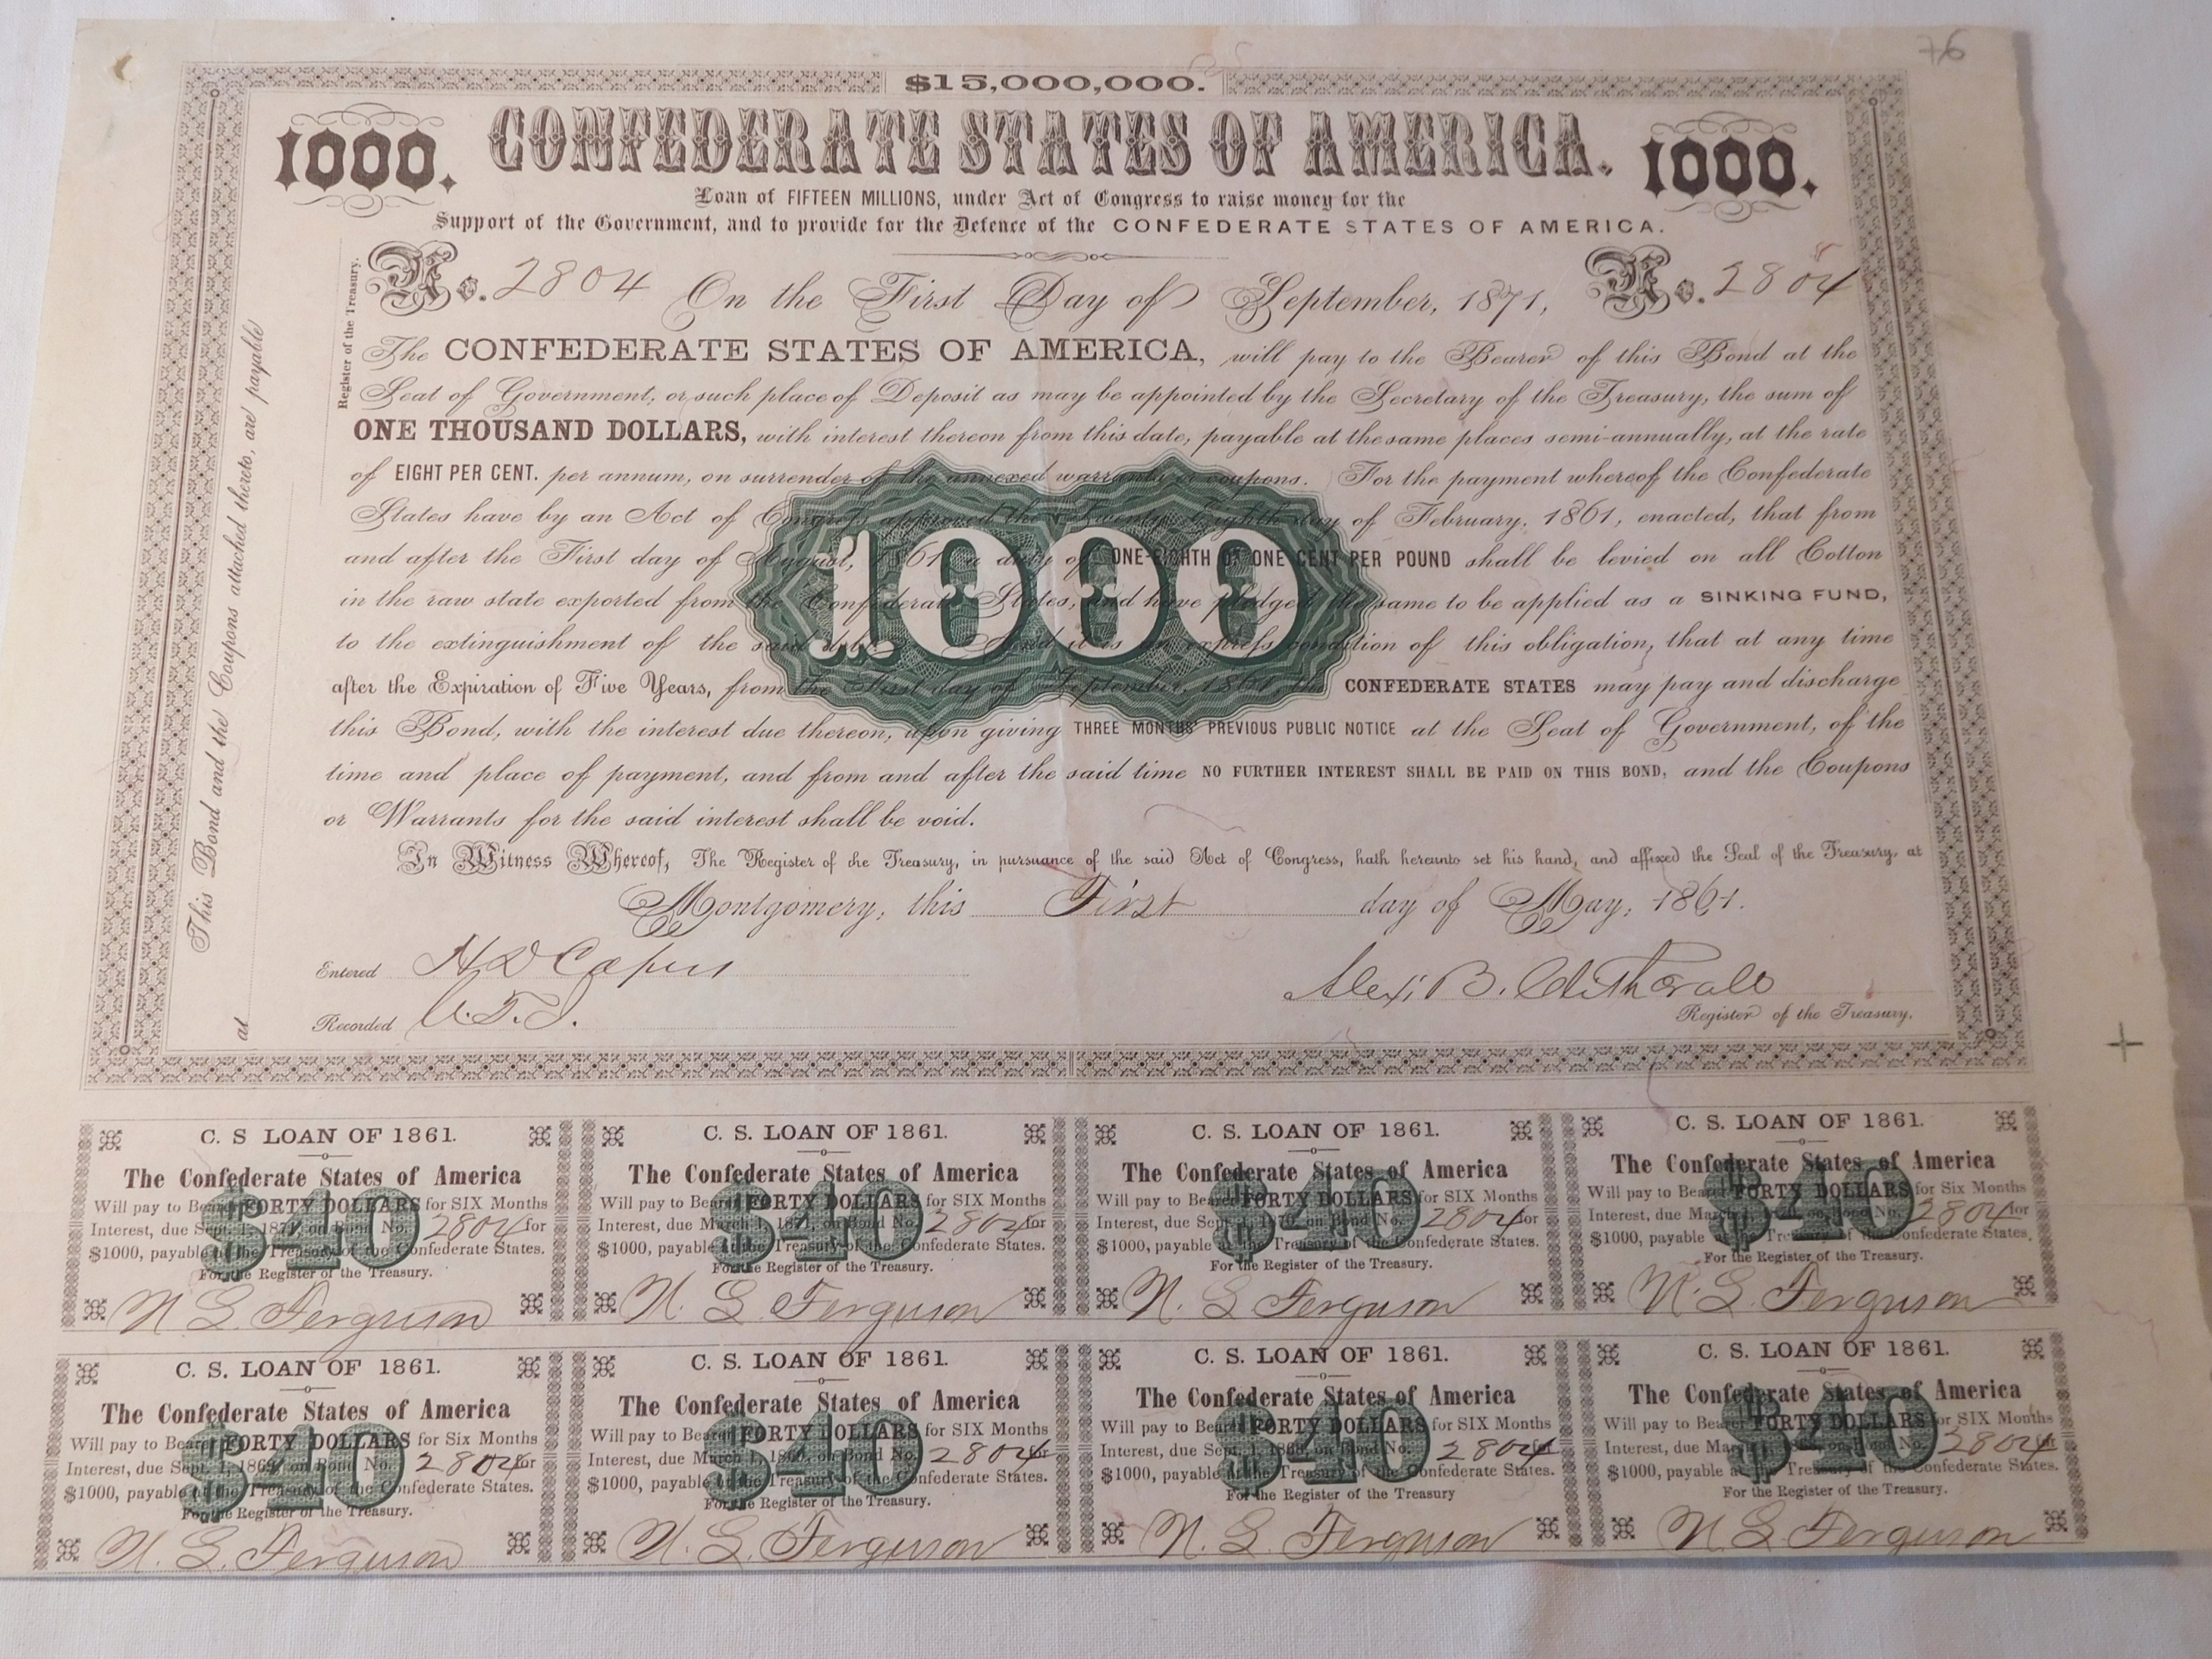 76
$15,000,000.
1000. CONFEDERATE STATES OF AMERICA. 1000.
Loan of FIFTEEN MILLIONS, under Act of Congress to raise money for the
Support of the Government, and to provide for the Defence of the CONFEDERATE STATES OF AMERICA.
No. 2804 On the First Day of September, 1871, No. 2804
The CONFEDERATE STATES OF AMERICA, will pay to the Bearer of this Bond at the
Seat of Government, or such place of Deposit as may be appointed by the Secretary of the Treasury, the sum of
ONE THOUSAND DOLLARS, with interest thereon from this date, payable at the same places semi-annually, at the rate
of EIGHT PER CENT. per annum, on surrender of the annexed warrants or coupons. For the payment whereof the Confederate
States have by an Act of Congress approved the Twenty Eighth day of February, 1861, enacted, that from
and after the First day of August, 1861 a duty of ONE-EIGHTH OF ONE CENT PER POUND shall be levied on all Cotton
in the raw state exported from the Confederate States, and have pledged the same to be applied as a SINKING FUND,
to the extinguishment of the said debt. And it is an express condition of this obligation, that at any time
after the Expiration of Five Years, from the First day of September, 1861, the CONFEDERATE STATES may pay and discharge
this Bond, with the interest due thereon, upon giving THREE MONTHS' PREVIOUS PUBLIC NOTICE at the Seat of Government, of the
time and place of payment, and from and after the said time NO FURTHER INTEREST SHALL BE PAID ON THIS BOND, and the Coupons
or Warrants for the said interest shall be void.
1000
In Witness Whereof, The Register of the Treasury, in pursuance of the said Act of Congress, hath hereunto set his hand, and affixed the Seal of the Treasury, at
Montgomery, this First day of May, 1861.
Entered H D Capers
Recorded C.T.J.
Alex: B. Clitherall
Register of the Treasury.
This Bond and the Coupons attached thereto, are payable
at
Register of the Treasury.
C. S LOAN OF 1861.
The Confederate States of America
Will pay to Bearer FORTY DOLLARS for SIX Months
Interest, due Sept. 1, 1871, on Bond No. 2804 for
$1000, payable at the Treasury of the Confederate States.
For the Register of the Treasury.
$40
N. S. Ferguson
C. S. LOAN OF 1861.
The Confederate States of America
Will pay to Bearer FORTY DOLLARS for SIX Months
Interest, due March 1, 1871, on Bond No. 2804 for
$1000, payable at the Treasury of the Confederate States.
For the Register of the Treasury.
$40
N. S. Ferguson
C. S. LOAN OF 1861.
The Confederate States of America
Will pay to Bearer FORTY DOLLARS for SIX Months
Interest, due Sept. 1, 1870, on Bond No. 2804 for
$1000, payable at the Treasury of the Confederate States.
For the Register of the Treasury.
$40
N. S. Ferguson
C. S. LOAN OF 1861.
The Confederate States of America
Will pay to Bearer FORTY DOLLARS for Six Months
Interest, due March 1, 1870, on Bond No. 2804 for
$1000, payable at the Treasury of the Confederate States.
For the Register of the Treasury.
$40
N. S. Ferguson
C. S. LOAN OF 1861.
The Confederate States of America
Will pay to Bearer FORTY DOLLARS for Six Months
Interest, due Sept. 1, 1869, on Bond No. 2804 for
$1000, payable at the Treasury of the Confederate States.
For the Register of the Treasury.
$40
N. S. Ferguson
C. S. LOAN OF 1861.
The Confederate States of America
Will pay to Bearer FORTY DOLLARS for SIX Months
Interest, due March 1, 1869, on Bond No. 2804 for
$1000, payable at the Treasury of the Confederate States.
For the Register of the Treasury.
$40
N. S. Ferguson
C. S. LOAN OF 1861.
The Confederate States of America
Will pay to Bearer FORTY DOLLARS for SIX Months
Interest, due Sept. 1, 1868, on Bond No. 2804
$1000, payable at the Treasury of the Confederate States.
For the Register of the Treasury
$40
N. S. Ferguson
C. S. LOAN OF 1861.
The Confederate States of America
Will pay to Bearer FORTY DOLLARS for SIX Months
Interest, due March 1, 1868, on Bond No. 2804
$1000, payable at the Treasury of the Confederate States.
For the Register of the Treasury.
$40
N. S. Ferguson